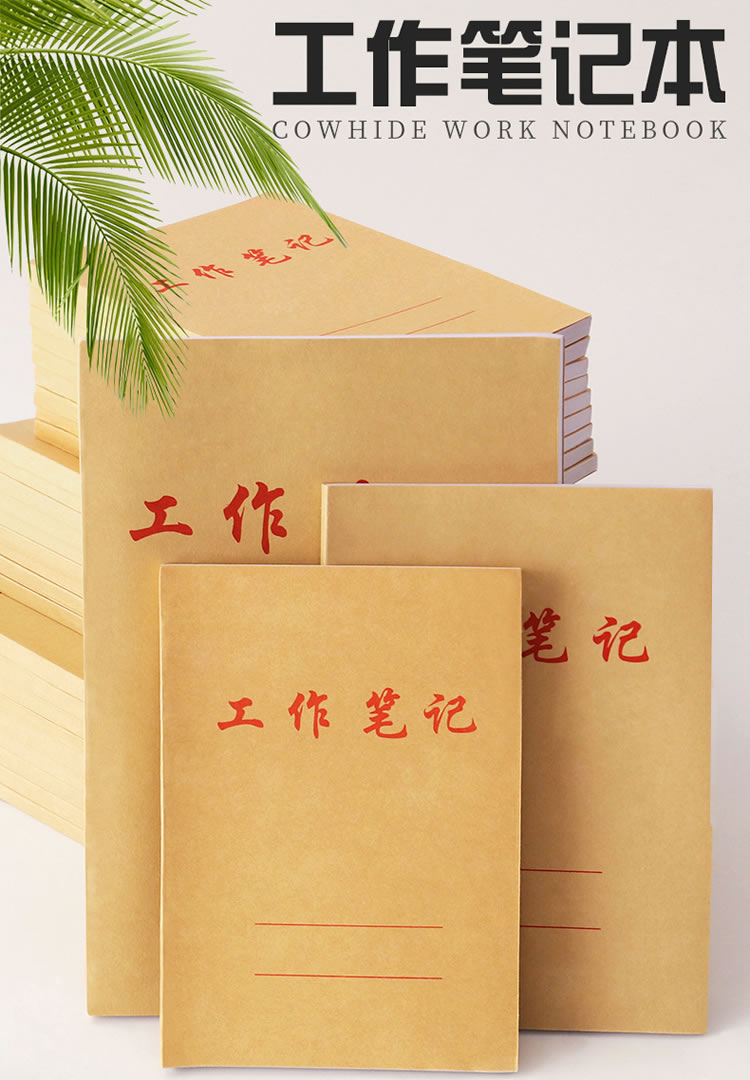 工作笔记本
COWHIDE WORK NOTEBOOK
工作笔记
工作
笔记
工作笔记